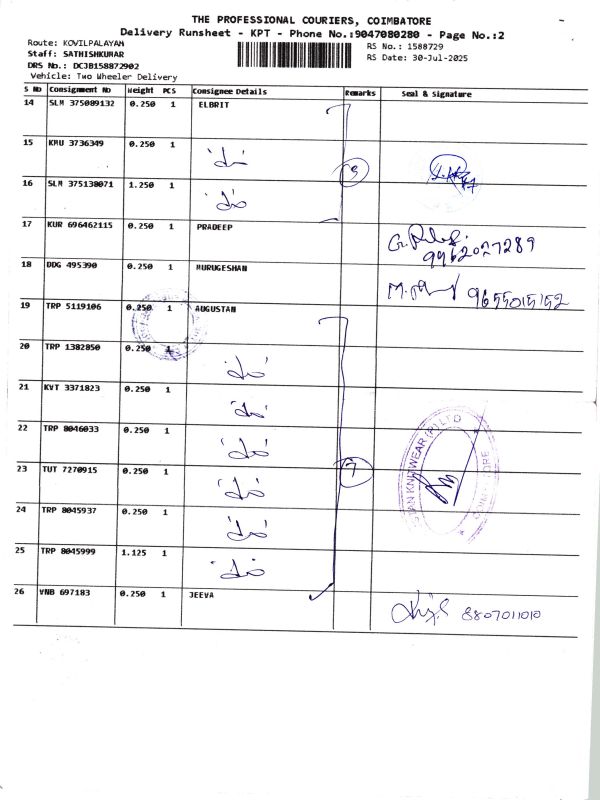 THE PROFESSIONAL COURIERS, COIMBATORE
Delivery Runsheet - KPT - Phone No.:9047080280 - Page No.:2
Route: KOVILPALAYAM
RS No.: 1588729
Staff: SATHISHKUMAR
RS Date: 30-Jul-2025
DRS No.: DCJB158872902
Vehicle: Two Wheeler Delivery
S No Consignment No Weight PCS Consignee Details Remarks Seal & Signature
14 SLM 375089132 0.250 1 ELBRIT
15 KMU 3736349 0.250 1
16 SLM 375138071 1.250 1
3
17 KUR 696462115 0.250 1 PRADEEP
9962027289
18 DDG 495390 0.250 1 MURUGESHAN
9655015152
19 TRP 5119106 0.250 1 AUGUSTAN
20 TRP 1382850 0.250 1
21 KVT 3371823 0.250 1
22 TRP 8046033 0.250 1
23 TUT 7270915 0.250 1
7
24 TRP 8045937 0.250 1
25 TRP 8045999 1.125 1
26 VNB 697183 0.250 1 JEEVA
8807011010